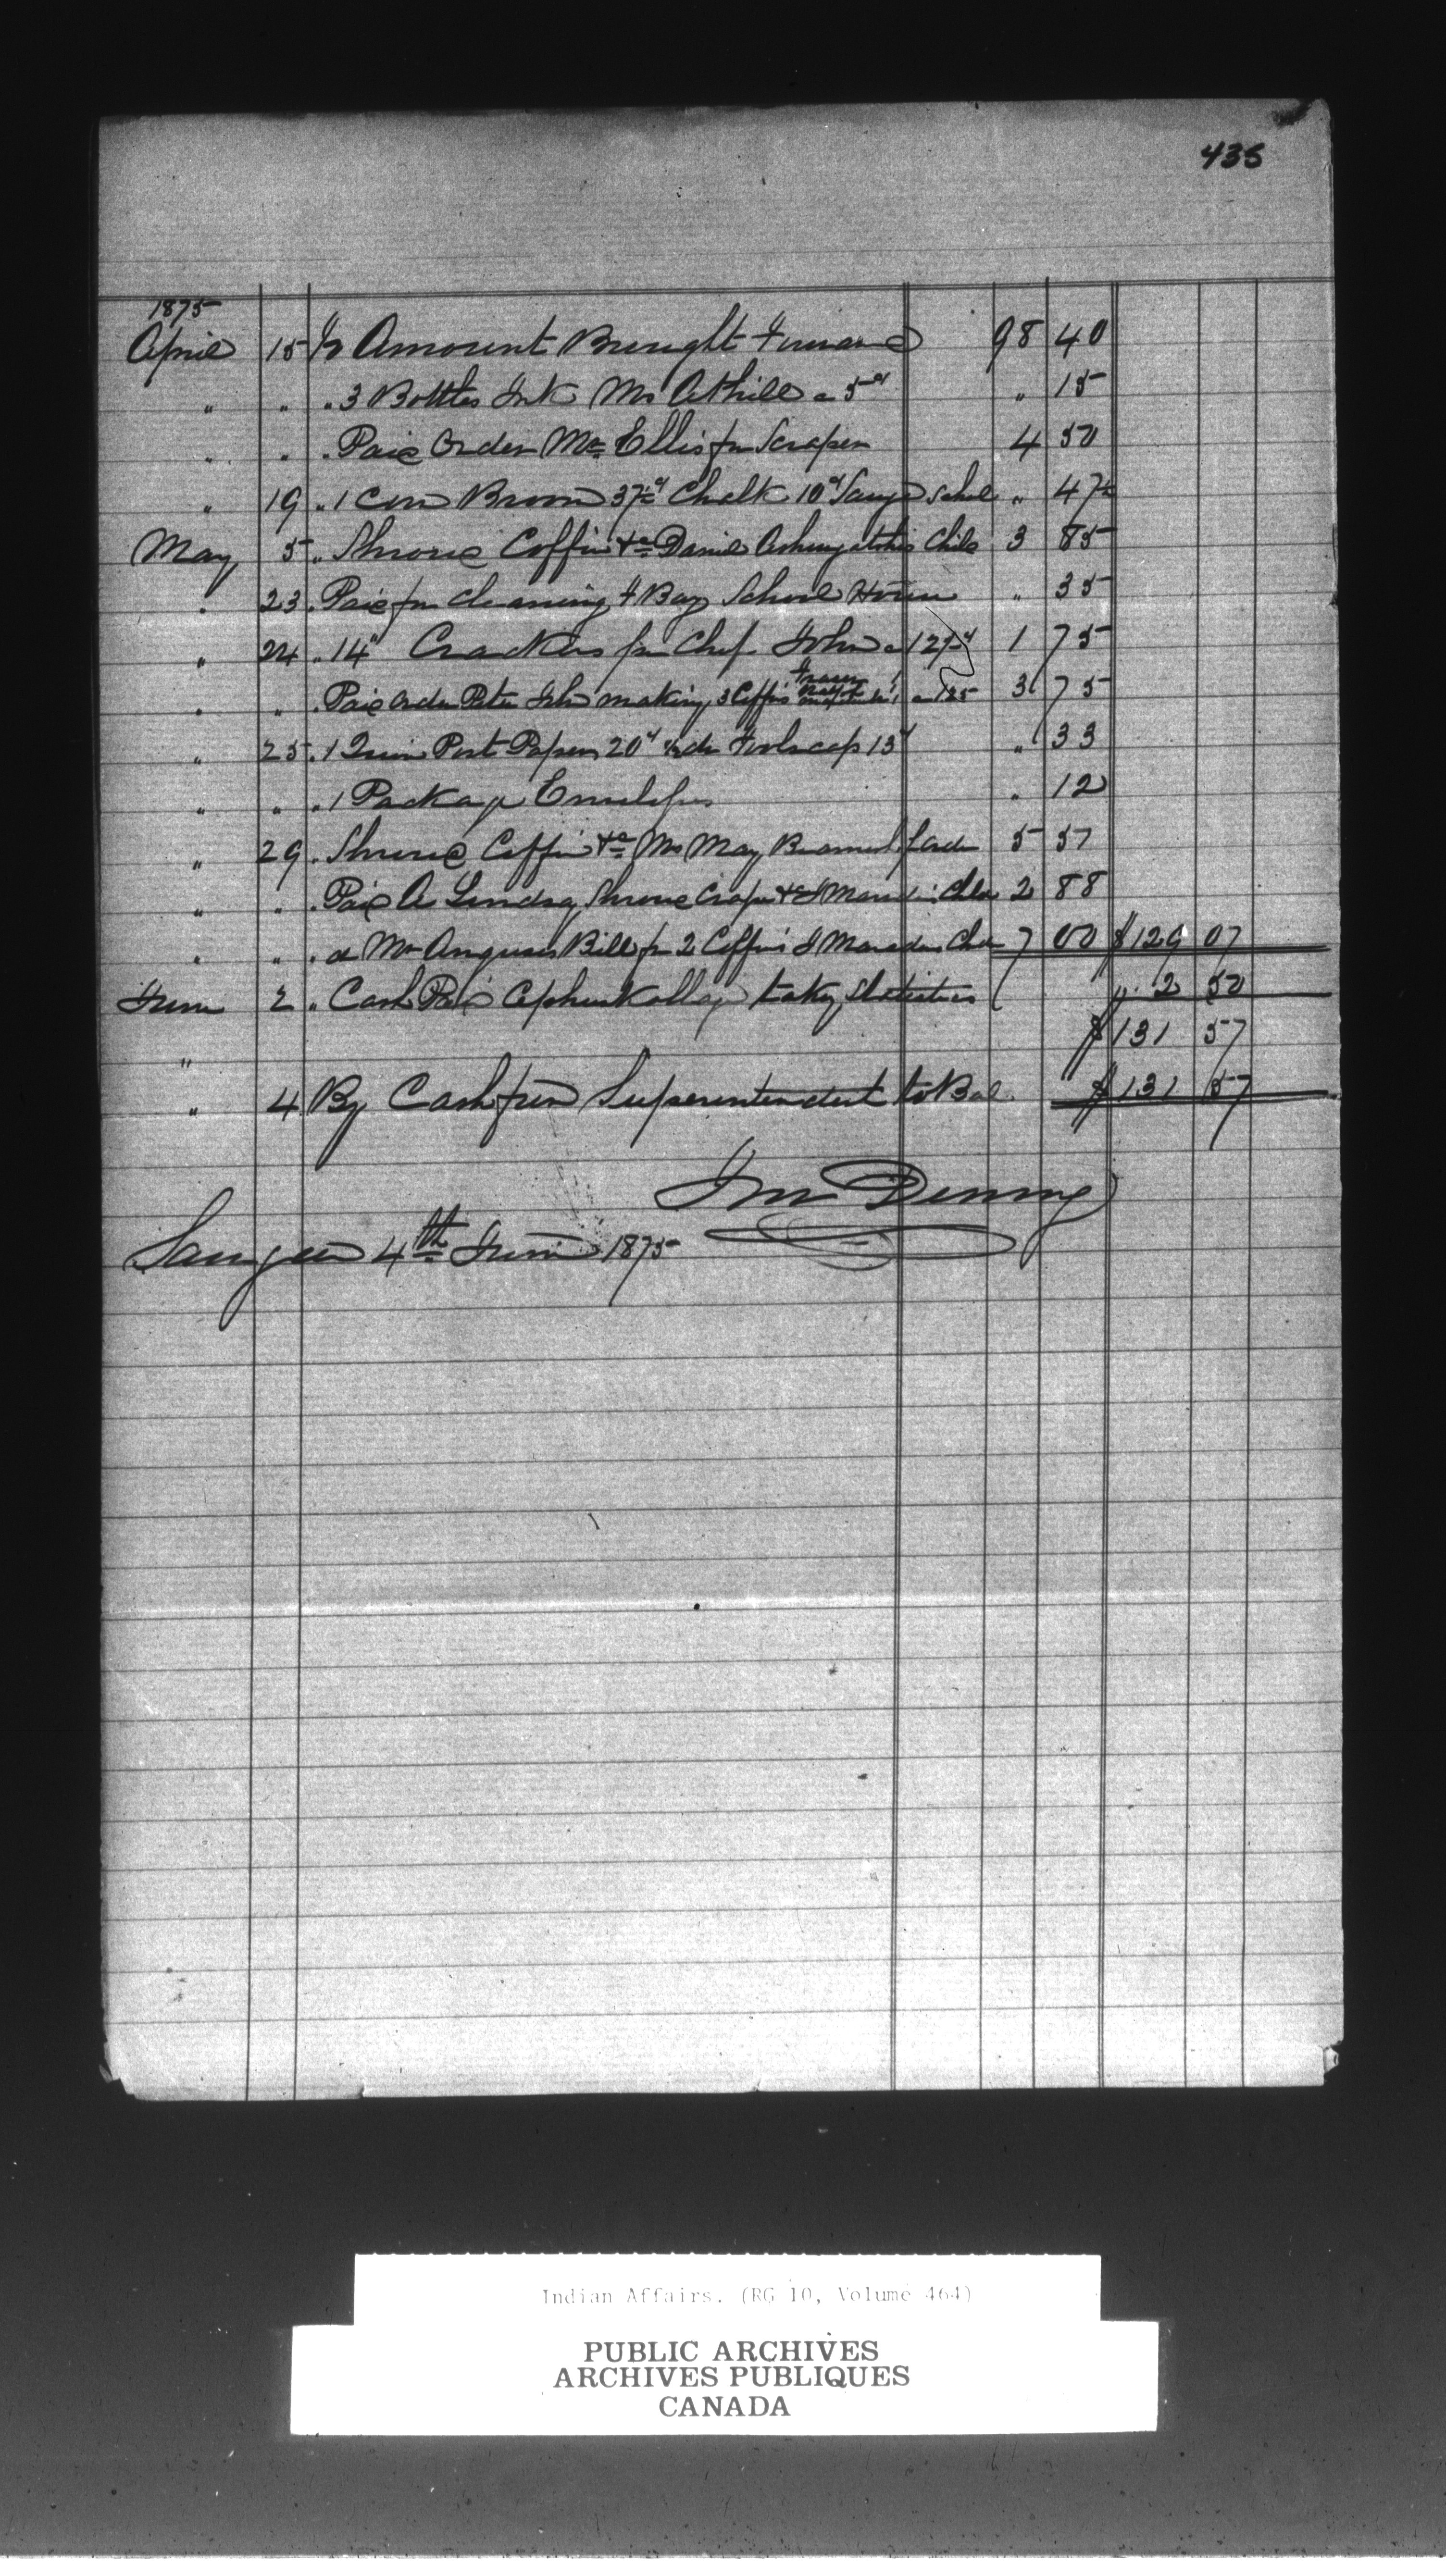 435
1875
April 15 To Amount Brought Forward 98 40
" " " 3 Bottles Ink Mr Athill a 5cts " 15
" " " Paid Order Mr Ellis for Scraper 4 50
" 19 " 1 Corn Broom 37½cts Chalk 10cts Saugn School " 47½
May 5 " Shroud Coffin &c Daniel Child 3 85
" 23 " Paid for Cleaning F Bay School House " 35
" 24 " 14" Crackers for Chief John a 12½cts 1 75
" " " Paid Order Peter John making 3 Coffins a 125 3 75
" 25 " 1 Quire Post Paper 20cts ½ do Foolscap 13cts " 33
" " " 1 Package Envelopes " 12
" 29 " Shroud Coffin &c Mrs May 5 57
" " " Paid A Lindsay Shroud Crape &c 2 88
" " " d Mr Anguses Bill for 2 Coffins 7 00 $129 07
June 2 " Cash Paid taking Statistics " 2 50
" $131 57
" 4 By Cash from Superintendent to Bal $131 57
Jno Denny
Saugeen 4th June 1875
Indian Affairs. (RG 10, Volume 464)
PUBLIC ARCHIVES
ARCHIVES PUBLIQUES
CANADA